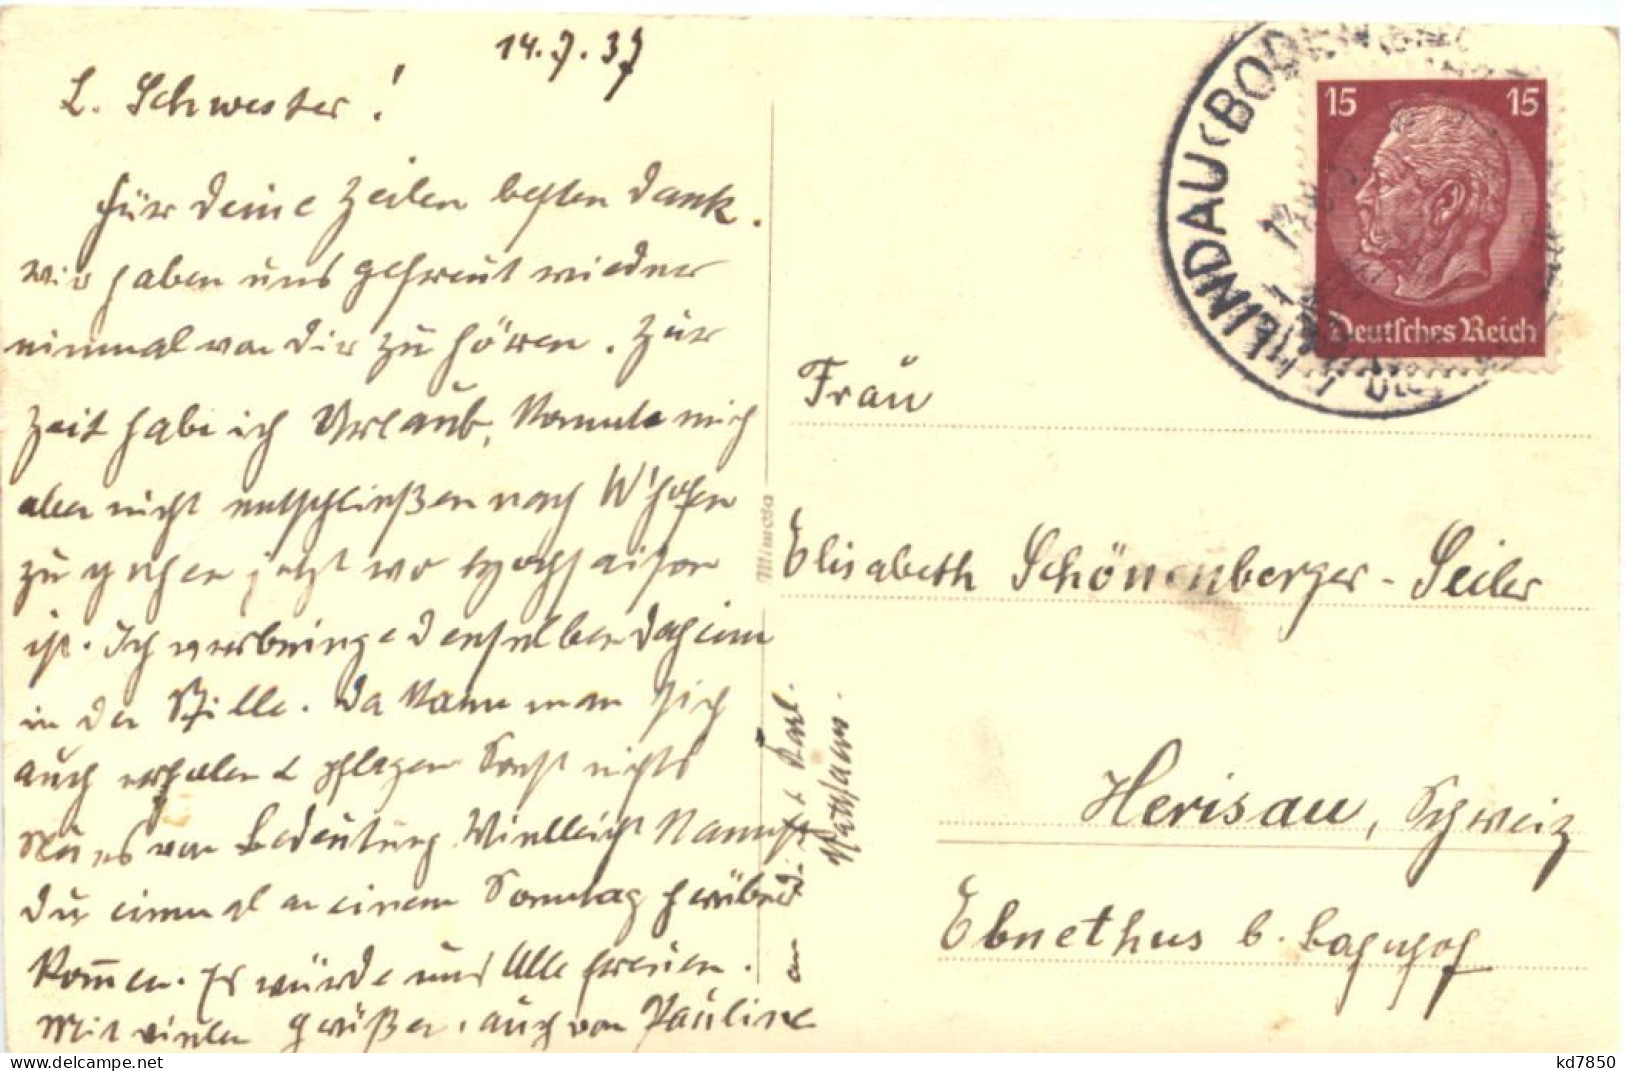 14.7.37
L. Schwester!
Für deine Zeilen besten Dank.
wir haben uns gefreut wieder
einmal von dir zu hören. Zur
Zeit habe ich Urlaub, konnte mich
aber nicht entschließen nach W'hofen
zu gehen jetzt wo Hochsaison
ist. Ich verbringe denselben daheim
in der Stille. Da kann man sich
auch erholen & pflegen Sonst nichts
Neues von Bedeutung Vielleicht kannst
Du einmal an einem Sonntag herüber
kom̄en. Es würde uns Alle freuen.
Mit vielen Grüßen, auch von Pauline
an dich & Karl.
Mimosa
LINDAU (BODENSEE)
15 15
Deutsches Reich
Frau
Elisabeth Schönenberger-Seiler
Herisau, Schweiz
Ebnethus b. Bahnhof
delcampe.net
kd7850